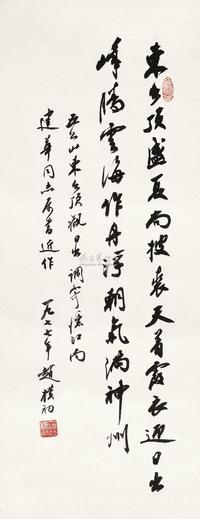 東台頂盛夏尚披裘天著霞衣迎日出
峰騰雲海作舟浮朝氣滿神州
五台山東台頂觀日出調寄憶江南
建華同志屬書近作 一九七七年 趙樸初